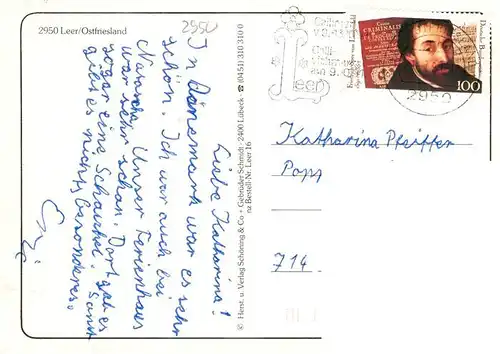 2950 Leer/Ostfriesland
2950
Liebe Katharina!
In Dänemark war es sehr
schön. Ich war auch bei
Unser Ferienhaus
war sehr schön. Dort gab es
sogar eine Schaukel. Sonst
gibt es nichts besonderes.
© Herst. u. Verlag Schöning & Co · Gebrüder Schmidt · 2400 Lübeck · ☎ (0451) 31 03 10
nz Bestell-Nr. Leer 16
Leer
100
2950
Katharina Pfeiffer
714